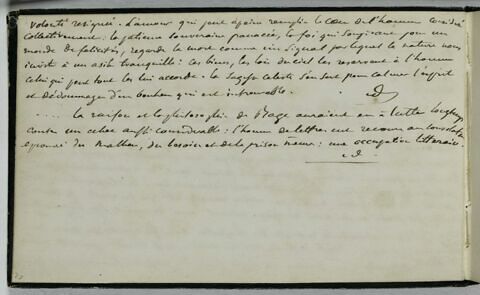 volonté résignée. L'amour qui peut après remplir le cœur de l'homme considéré
collectivement : la patience souveraine panacée, la foi qui soupire pour un
monde de félicités, regarde la mort comme un signal par lequel la nature nous
invite à un asile tranquille : ces biens, les lois du ciel les réservent à l'homme
celui qui peut tout les lui accorde. La sagesse céleste s'en sert pour calmer l'esprit
et dédommager d'un bonheur qui est introuvable.
.... la raison et la philosophie de auraient eu à lutter longtemps
contre un échec aussi considérable : l'homme de lettres eut recours au consolateur
éprouvé du malheur, du besoin et de la prison même : une occupation littéraire.
id.